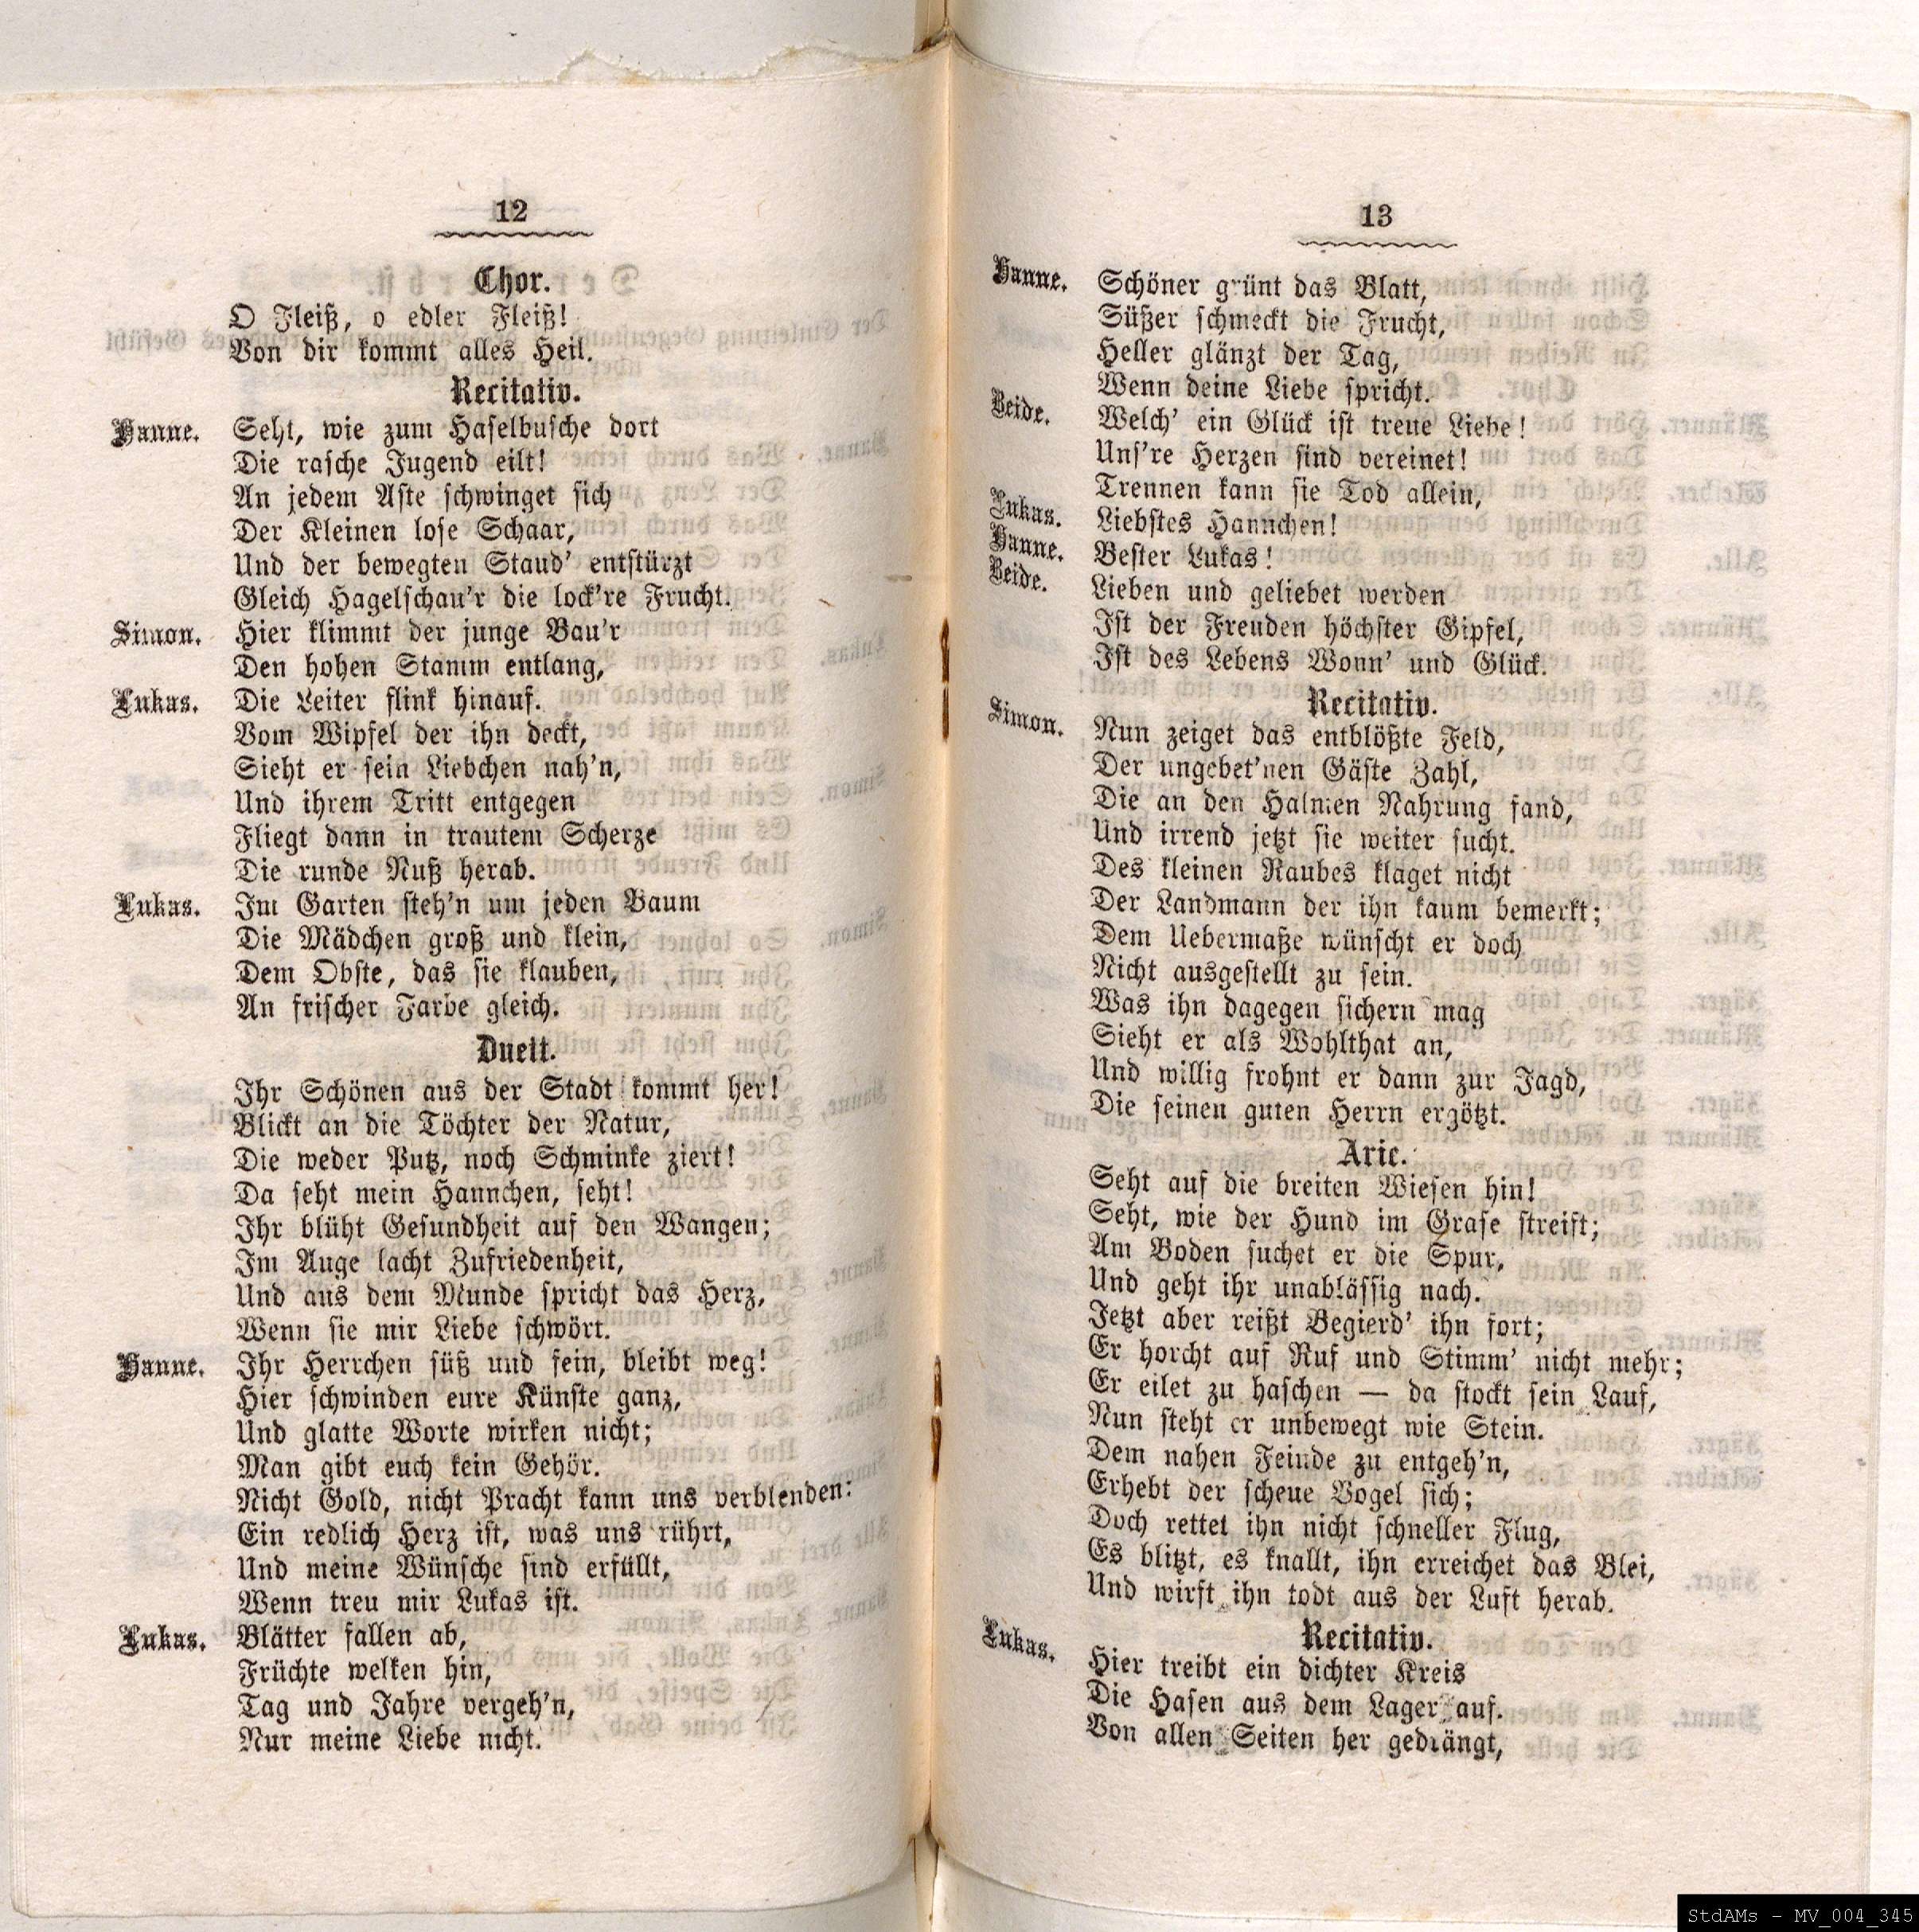 12
Chor.
O Fleiß, o edler Fleiß!
Von dir kommt alles Heil.
Recitativ.
Hanne. Seht, wie zum Haselbusche dort
Die rasche Jugend eilt!
An jedem Aste schwinget sich
Der Kleinen lose Schaar,
Und der bewegten Staud' entstürzt
Gleich Hagelschau'r die lock're Frucht.
Simon. Hier klimmt der junge Bau'r
Den hohen Stamm entlang,
Lukas. Die Leiter flink hinauf.
Vom Wipfel der ihn deckt,
Sieht er sein Liebchen nah'n,
Und ihrem Tritt entgegen
Fliegt dann in trautem Scherze
Die runde Nuß herab.
Lukas. Im Garten steh'n um jeden Baum
Die Mädchen groß und klein,
Dem Obste, das sie klauben,
An frischer Farbe gleich.
Duett.
Ihr Schönen aus der Stadt kommt her!
Blickt an die Töchter der Natur,
Die weder Putz, noch Schminke ziert!
Da seht mein Hannchen, seht!
Ihr blüht Gesundheit auf den Wangen;
Im Auge lacht Zufriedenheit,
Und aus dem Munde spricht das Herz,
Wenn sie mir Liebe schwört.
Hanne. Ihr Herrchen süß und fein, bleibt weg!
Hier schwinden eure Künste ganz,
Und glatte Worte wirken nicht;
Man gibt euch kein Gehör.
Nicht Gold, nicht Pracht kann uns verblenden:
Ein redlich Herz ist, was uns rührt,
Und meine Wünsche sind erfüllt,
Wenn treu mir Lukas ist.
Lukas. Blätter fallen ab,
Früchte welken hin,
Tag und Jahre vergeh'n,
Nur meine Liebe nicht.
13
Hanne. Schöner grünt das Blatt,
Süßer schmeckt die Frucht,
Heller glänzt der Tag,
Wenn deine Liebe spricht.
Beide. Welch' ein Glück ist treue Liebe!
Uns're Herzen sind vereinet!
Trennen kann sie Tod allein,
Lukas. Liebstes Hannchen!
Hanne. Bester Lukas!
Beide. Lieben und geliebet werden
Ist der Freuden höchster Gipfel,
Ist des Lebens Wonn' und Glück.
Recitativ.
Simon. Nun zeiget das entblößte Feld,
Der ungebet'nen Gäste Zahl,
Die an den Halmen Nahrung fand,
Und irrend jetzt sie weiter sucht.
Des kleinen Raubes klaget nicht
Der Landmann der ihn kaum bemerkt;
Dem Uebermaße wünscht er doch
Nicht ausgestellt zu sein.
Was ihn dagegen sichern mag
Sieht er als Wohlthat an,
Und willig frohnt er dann zur Jagd,
Die seinen guten Herrn ergötzt.
Arie.
Seht auf die breiten Wiesen hin!
Seht, wie der Hund im Grase streift;
Am Boden suchet er die Spur,
Und geht ihr unablässig nach.
Jetzt aber reißt Begierd' ihn fort;
Er horcht auf Ruf und Stimm' nicht mehr;
Er eilet zu haschen — da stockt sein Lauf,
Nun steht er unbewegt wie Stein.
Dem nahen Feinde zu entgeh'n,
Erhebt der scheue Vogel sich;
Doch rettet ihn nicht schneller Flug,
Es blitzt, es knallt, ihn erreichet das Blei,
Und wirft ihn todt aus der Luft herab.
Recitativ.
Lukas. Hier treibt ein dichter Kreis
Die Hasen aus dem Lager auf.
Von allen Seiten her gedrängt,
StdAMs - MV_004_345